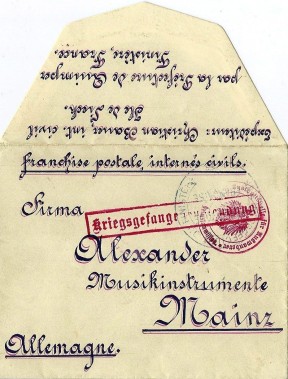 Expéditeur: Christian Bauer int. civil
Ile de Sieck.
par la Préfecture de Quimper
Finistère, France.
Franchise postale, internés civils.
Firma
Kriegsgefangenensendung
Alexander
Musikinstrumente
Mainz
Allemagne.